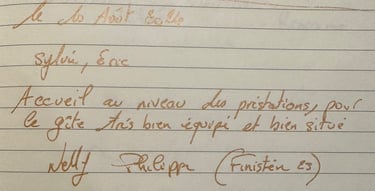 le 10 Août 2020
Sylvie, Eric
Accueil au niveau des préstations, pour
le gîte très bien équipé et bien situé
Nelly Philippe (Finistère 29)